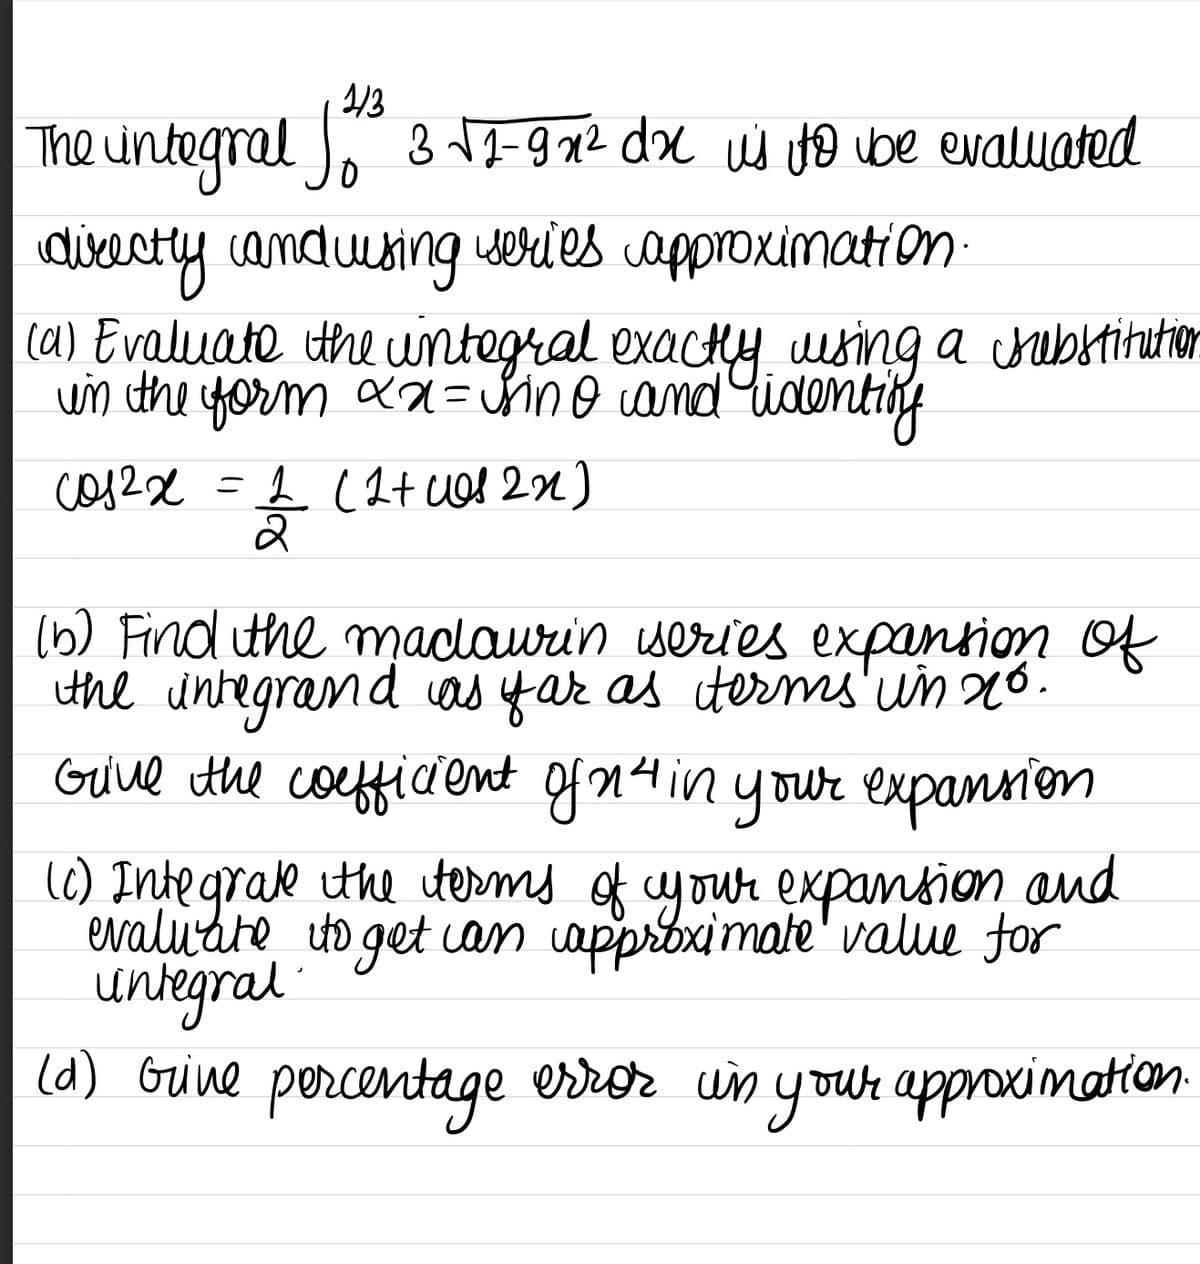 The integral ∫₀^{1/3} 3 √1-9x² dx is to be evaluated
directly and using series approximation.
(a) Evaluate the integral exactly using a substitution
in the form αx = sin θ and identity
cos2x = 1/2 (1+cos 2x)
(b) Find the maclaurin series expansion of
the integrand as far as terms in x⁶.
Give the coefficient of x⁴ in your expansion
(c) Integrate the terms of your expansion and
evaluate to get an approximate value for
integral.
(d) Give percentage error in your approximation.